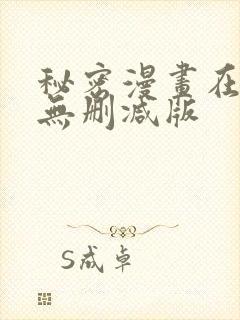 秘密漫畫在
無刪減版
S成卓